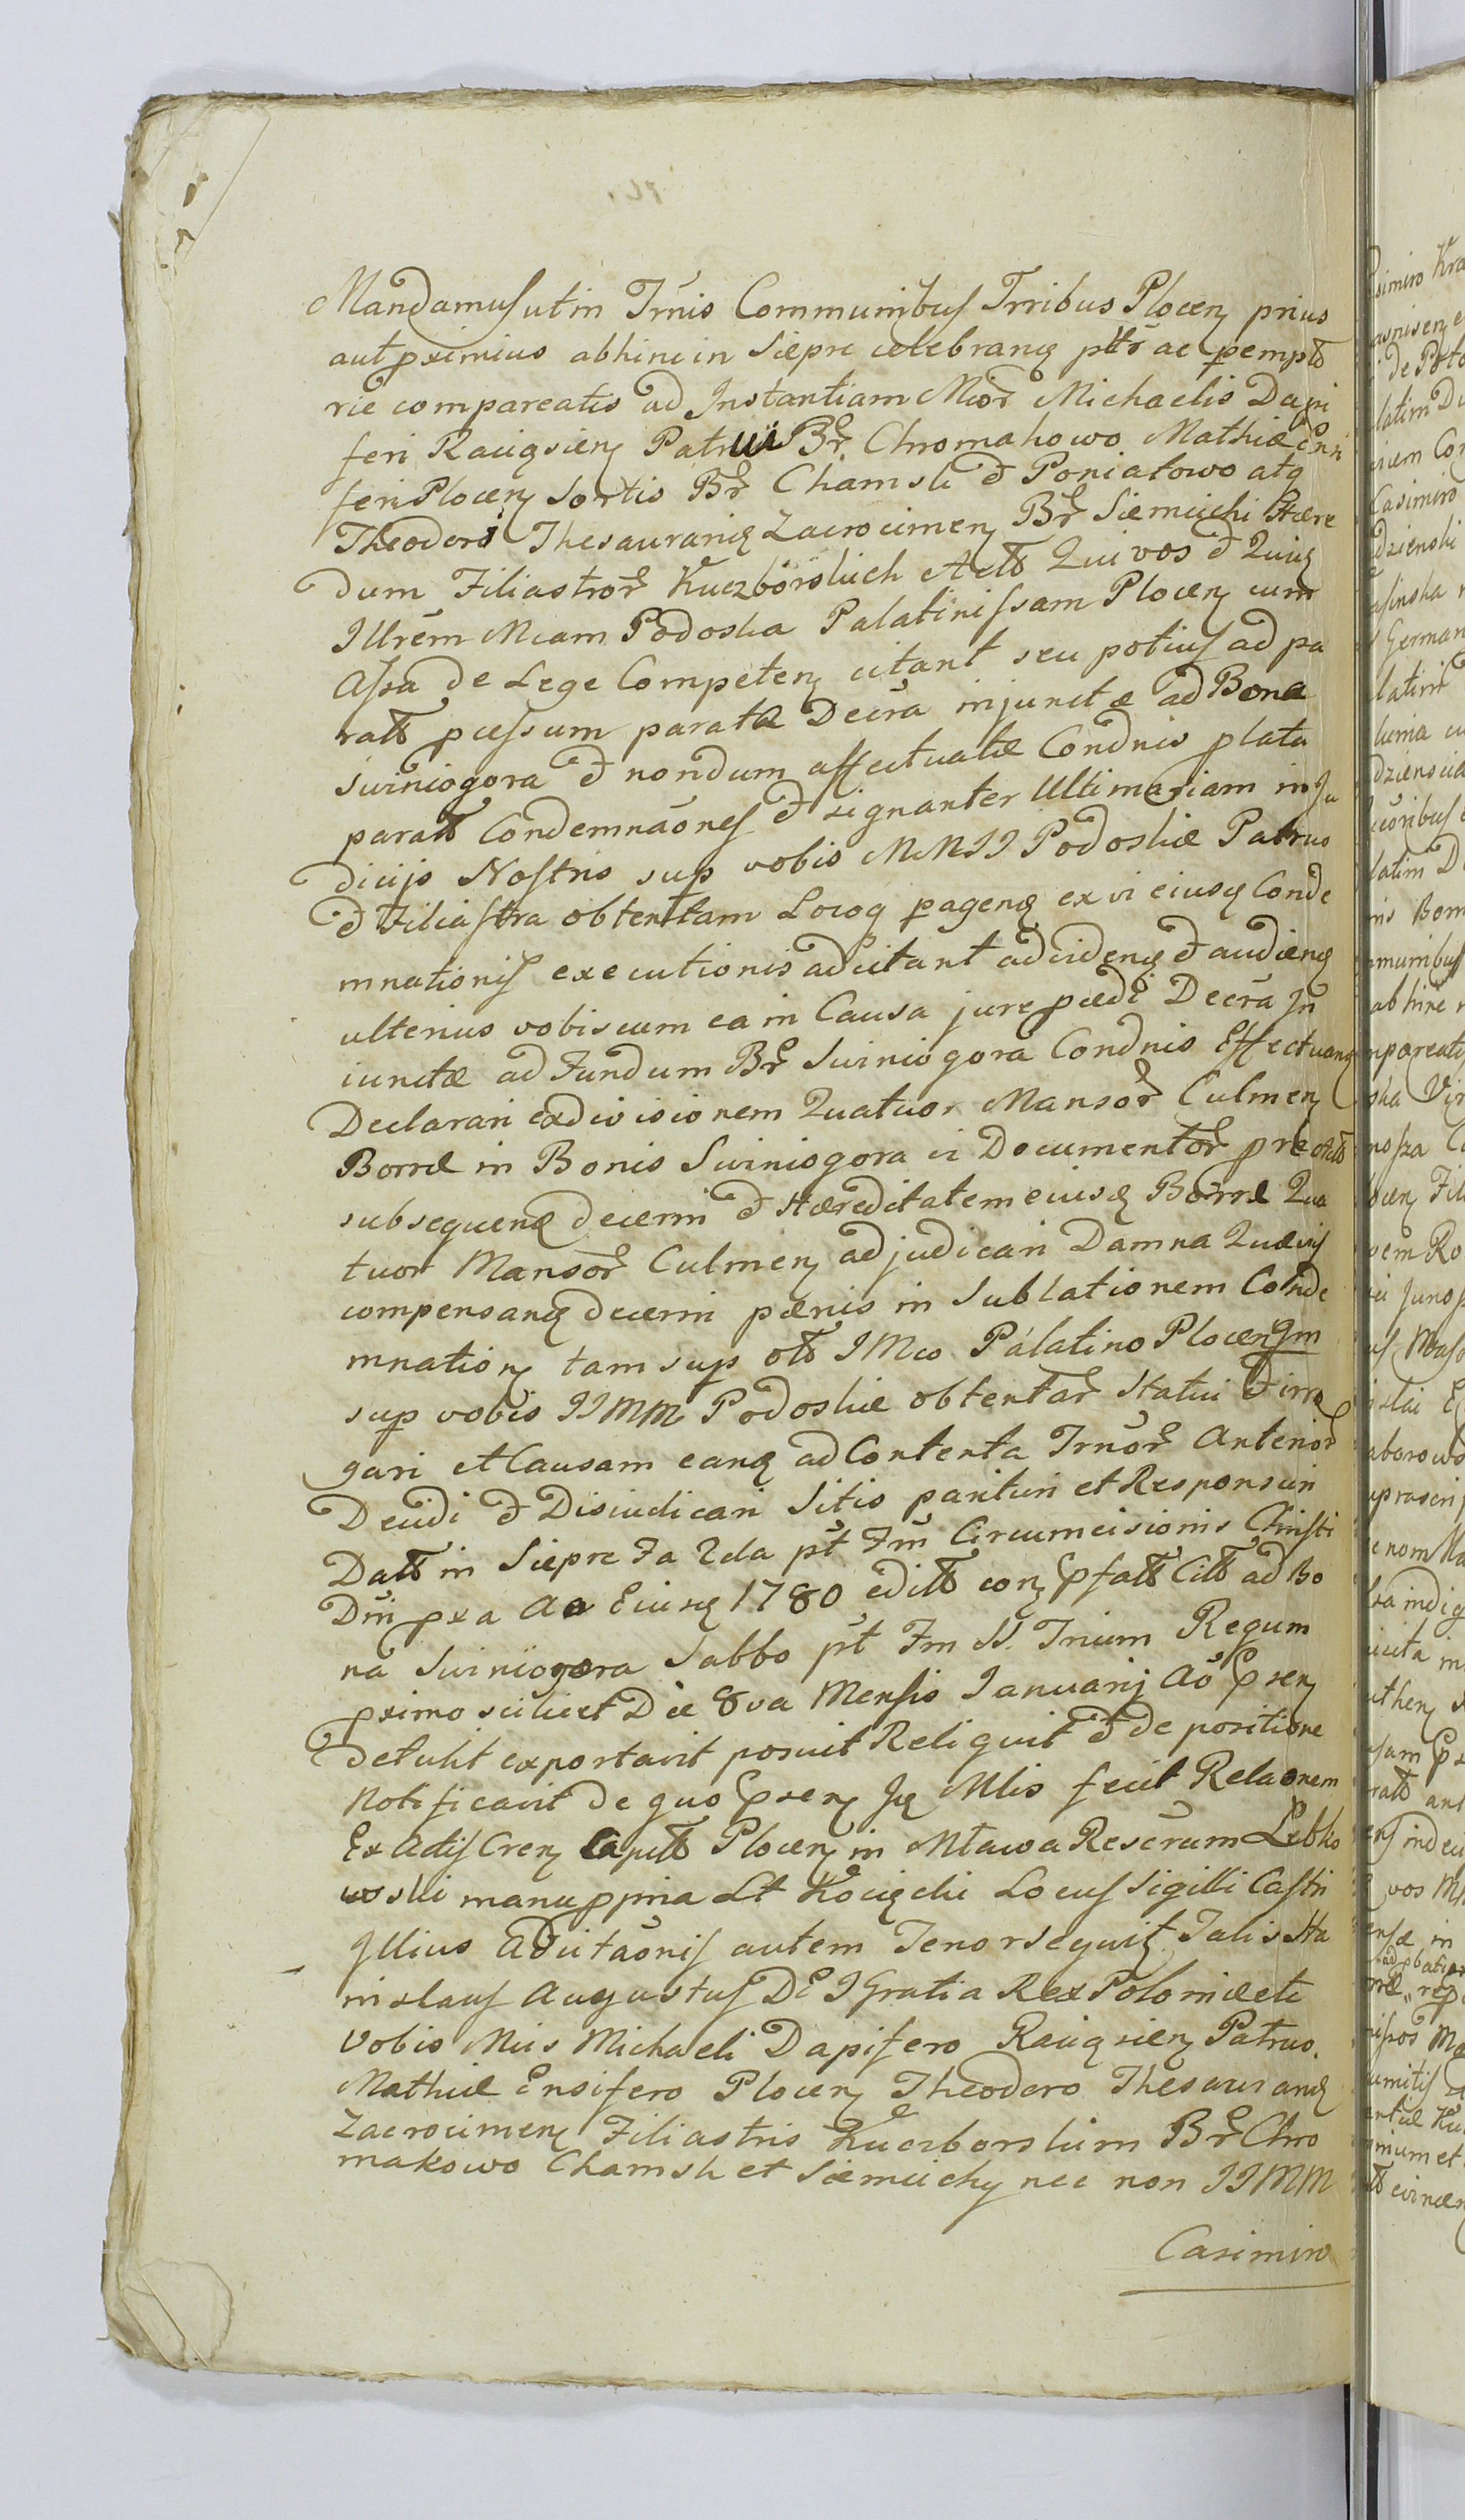 Mandamus ut in Trnis Communibus Trribus Plocen prius
aut pximius abhinc in Siepre celebranq ptr ac pempto
rie compareatis ad Instantiam Mcor Michaelis Dapi
feri Raciąsien Patrui Br Chromakowo Mathiæ Ensi
feri Plocen Sortis Br Chamsk & Poniatowo atq
Theodori Thesaurariq Zacrocimen Br Siemiichi Hære
dum Filiastror Kuczborskich Actt Qui vos & Quiq
Illrem Mcam Podoska Palatinissam Plocen cum
Assa de Lege Competen citant seu potius ad pa
ratt pcessum parata Decra injunctæ ad Bona
Swiniogora & nondum affectuatæ Condnis plata
paratt Condemnaones & signanter Ultimariam in Ju
dicijs Nostris sup vobis MMJJ Podoskie Patruo
& Filiastra obtentam Locoq pagenq ex vi eiusq Conde
mnationis executionis adcitant ad videnq & audienq
ulterius vobiscum ea in Causa jure pcedi Decra In
iunctæ ad Fundum Br Swiniogora Condnis Effectuanq
Declarari exdivisionem Quatuor Mansor Culmen
Borræ in Bonis Swiniogora vi Documentor pr Actt
subsequenq decerni & Hæreditatem eiusq Borræ Qua
tuor Mansor Culmen adjudicari Damna Quævis
compensanq decerni pænis in Sublationem Conde
mnation tam sup ott JMco Palatino Plocen qm
sup vobis JJMM Podoskie obtentar Statui & irro
gari et Causam eanq ad Contenta Trnor Anterior
Decidi & Disiudicari Sitis parituri et Responsuri
Datt in Siepre Fa 2da pt Fm Circumcisionis Christi
Dni pxa Ao Eiusq 1780 editt con Psatt Citt ad Bo
na Swiniogora Sabbo pt Fm SS. Trium Regum
pximo scilicet Die 8va Mensis Januarij Ao Psen
detulit exportavit posuit Reliquit & de positione
Notificavit de quo Psen Jq Mlis fecit Relaonem
Ex Actis Cren Capitt Plocen in Mława Rescrum Lebko
wski manu ppria Lt Kociecki Locus Sigilli Castri
Illius Adcitaonis autem Tenor sequit Talis Sta
nislaus Augustus DEI Gratia Rex Poloniæ etc
Vobis Mcis Michaeli Dapifero Raciąsien Patruo.
Mathiæ Ensifero Plocen Theodoro Thesaurarq
Zacrocimen Filiastris Kuczborskim Br Chro
makowo Chamsk et Siemiichy nec non JJMM
Casimiro